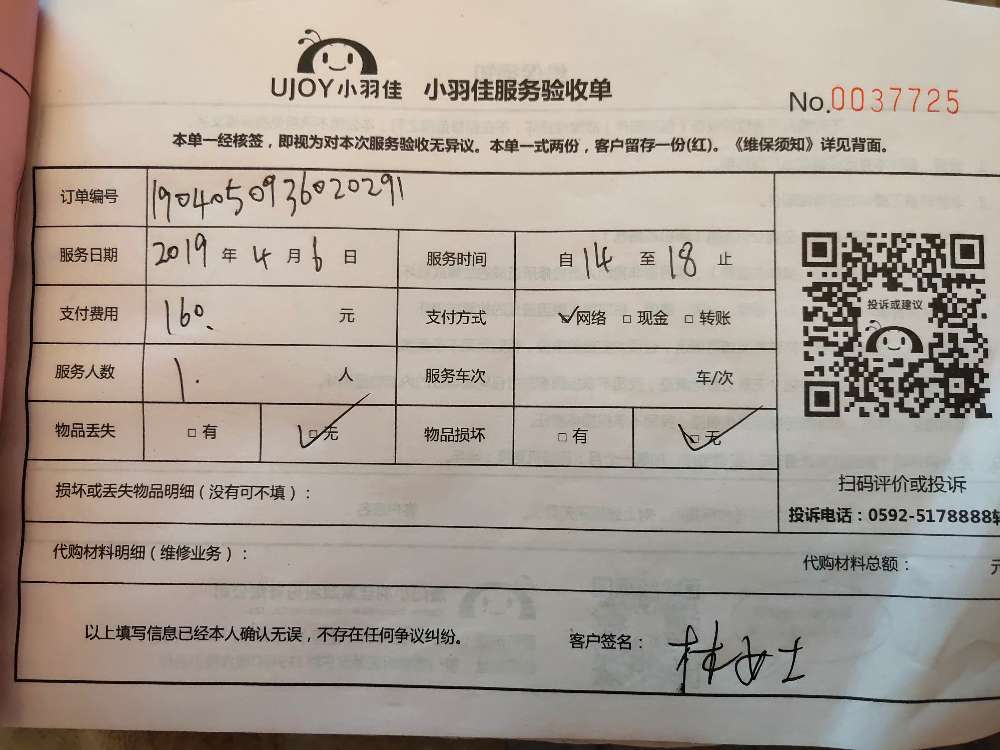 UJOY小羽佳 小羽佳服务验收单
No.0037725
本单一经核签，即视为对本次服务验收无异议。本单一式两份，客户留存一份(红)。《维保须知》详见背面。
订单编号 1904050936020291
服务日期 2019 年 4 月 6 日 服务时间 自 14 至 18 止
支付费用 160. 元 支付方式 ☑网络 □现金 □转账
投诉或建议
服务人数 1. 人 服务车次 车/次
物品丢失 □有 ☑无 物品损坏 □有 ☑无
扫码评价或投诉
损坏或丢失物品明细（没有可不填）：
投诉电话：0592-5178888转
代购材料明细（维修业务）： 代购材料总额： 元
以上填写信息已经本人确认无误，不存在任何争议纠纷。 客户签名： 林女士